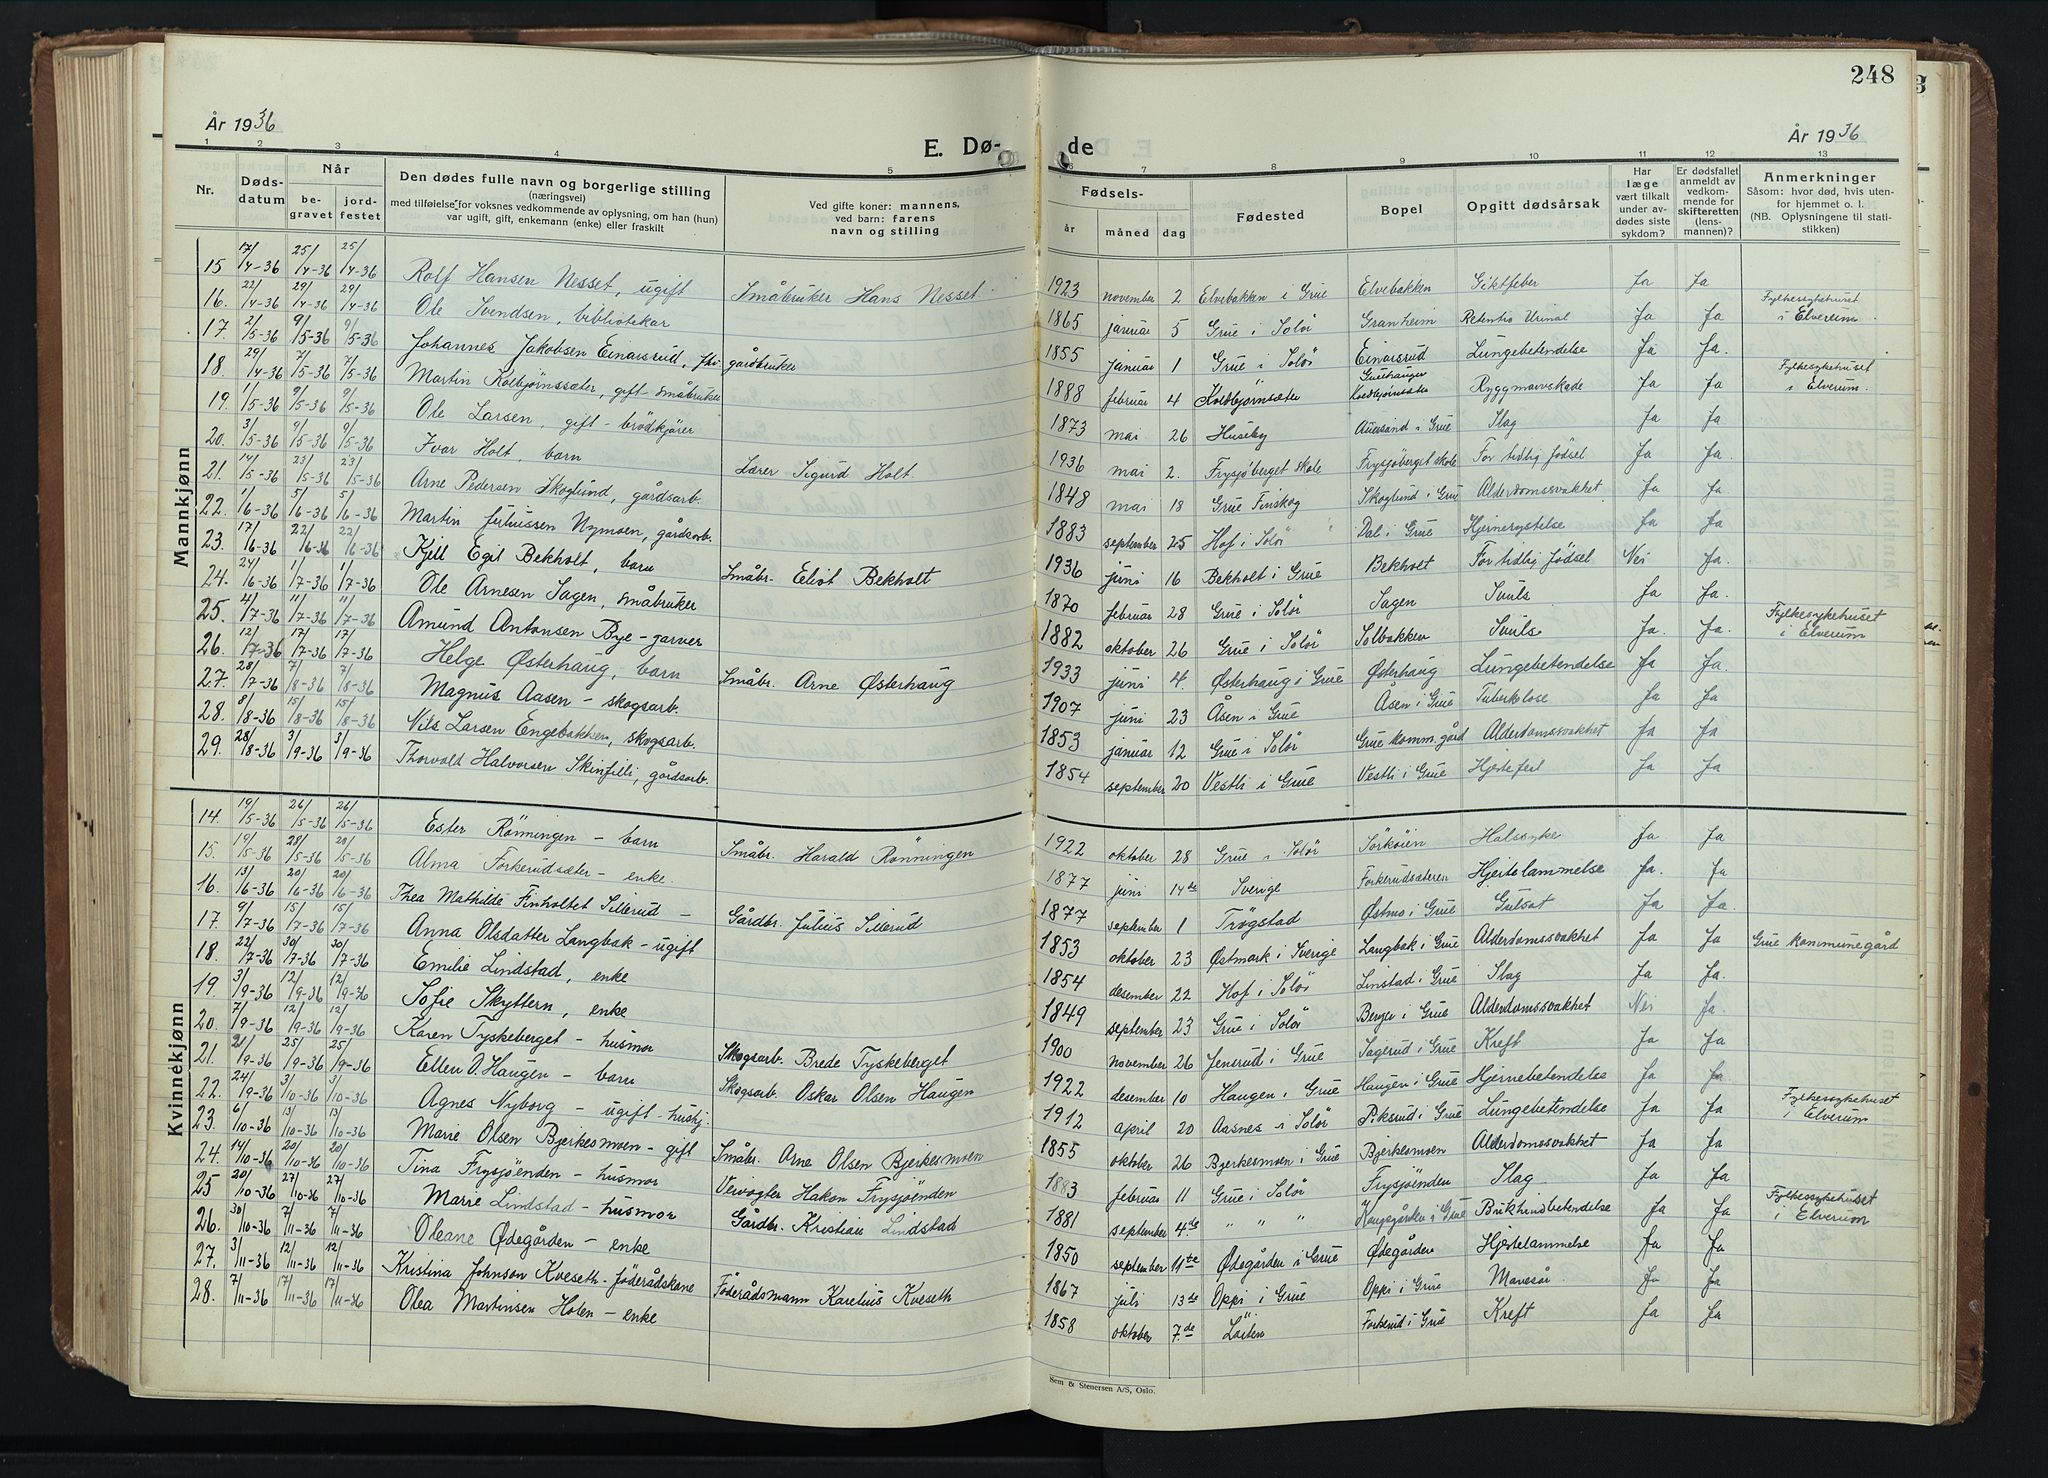 248
År 1936
År 1936
E. Dø-
de
1 2 3 4 5
6 7 8 9 10 11 12 13
Nr. | Døds-datum | Når begravet | jordfestet | Den dødes fulle navn og borgerlige stilling (næringsvei) med tilføielse for voksnes vedkommende av oplysning, om han (hun) var ugift, gift, enkemann (enke) eller fraskilt | Ved gifte koner: mannens, ved barn: farens navn og stilling | Fødsels- år | måned | dag | Fødested | Bopel | Opgitt dødsårsak | Har læge vært tilkalt under avdødes siste sykdom? | Er dødsfallet anmeldt av vedkommende for skifteretten (lensmannen)? | Anmerkninger Såsom: hvor død, hvis utenfor hjemmet o. l. (NB. Oplysningene til statistikken)
Mannkjønn
15 17/4-36 25/4-36 25/4-36 Rolf Hansen Nesset, ugift Småbruker Hans Nesset. 1923 november 2 Elvebakken i Grue Elvebakken Giktfeber Ja Ja
16. 22/4-36 29/4-36 29/4-36 Ole Svendsen, bibliotekar 1865 januar 5 Grue i Solør Granheim Retentio Urinal Ja Ja Fylkesykehuset i Elverum.
17 2/5-36 9/5-36 9/5-36 Johannes Jakobsen Einarsrud, fhv. gårdbruker 1855 januar 1 Grue i Solør Einarsrud Lungebetendelse Ja Ja.
18. 29/4-36 7/5-36 7/5-36 Martin Kolbjørnssæter, gift småbruker 1888 februar 4 Kolbjørnsæter Gruehaugen Kolbjørnsæter Ryggmarvskade Ja Ja Fylkesykehuset i Elverum.
19. 1/5-36 9/5-36 9/5-36 Ole Larsen, gift - brødkjører 1873 mai 26 Huseby i Grue Slag Ja Ja
20. 3/5-36 9/5-36 9/5-36 Ivar Holt, barn Lærer Sigurd Holt 1936 mai 2. Frysjøberget skole Frysjøberget skole For tidlig fødsel Ja Ja.
21. 14/5-36 23/5-36 23/5-36 Arne Pedersen Skoglund, gårdsarb. 1848 mai 18 Grue Finskog Skoglund i Grue Alderdomssvakhet Ja Ja
22. 1/6-36 5/6-36 5/6-36 Martin Juliussen Nymoen, gårdsarb. 1883 september 25 Hof i Solør Dal i Grue Hjernerystelse Ja Ja
23. 17/6-36 22/6-36 22/6-36 Kjell Egil Bekholt, barn Småbr. Eliot Bekholt 1936 juni 16 Bekholt i Grue Bekholt For tidlig fødsel Nei Ja.
24. 24/6-36 1/7-36 1/7-36 Ole Arnesen Sagen, småbruker 1870 februar 28 Grue i Solør Sagen Svuls Ja Ja.
25. 4/7-36 11/7-36 11/7-36 Amund Antonsen Bye - garver 1882 oktober 26 Grue i Solør Solbakken Svuls Ja. Ja. Fylkesykehuset i Elverum
26. 12/7-36 17/7-36 17/7-36 Helge Østerhaug, barn Småbr. Arne Østerhaug 1933 juni 4. Østerhaug i Grue Østerhaug Lungebetendelse Ja Ja.
27. 28/7-36 7/8-36 7/8-36 Magnus Aasen - skogsarb. 1907 juni 23 Åsen i Grue Åsen i Grue Tuberkulose Ja Ja
28. 8/8-36 15/8-36 15/8-36 Nils Larsen Engebakken, skogsarb. 1853 januar 12 Grue i Solør Grue komm.gård Alderdomssvakhet Ja Ja
29. 28/8-36 3/9-36 3/9-36 Thorvald Halvorsen Skinfilli, gårdsarb. 1854 september 20 Vestli i Grue Vestli i Grue Hjertefeil Ja Ja
Kvinnekjønn
14. 19/5-36 26/5-36 26/5-36 Ester Rønningen - barn Småbr. Harald Rønningen 1922 oktober 28 Grue i Solør Sørkøien Halssyke Ja. Ja
15. 19/5-36 28/5-36 28/5-36 Alma Forkerudsæter - enke. 1877 juni 14de Sverige Forkerudsæteren Hjertelammelse Ja. Ja
16. 13/6-36 20/6-36 20/6-36 Thea Mathilde Finholtet Sillerud - Gårdbr. Julius Sillerud 1877 september 1 Trøgstad Østmo i Grue Gulsot Ja Ja.
17. 9/7-36 15/7-36 15/7-36 Anna Olsdatter Langbak - ugift 1853 oktober 23 Østmark i Sverige Langbak i Grue Alderdomssvakhet Ja Ja Grue kommunegård
18. 22/7-36 30/7-36 30/7-36 Emilie Lindstad, enke 1854 desember 22 Hof i Solør Linstad i Grue Slag Ja Ja.
19. 3/9-36 12/9-36 12/9-36 Sofie Skyttern, enke 1849 september 23 Grue i Solør Berger i Grue Alderdomssvakhet Nei Ja.
20. 7/9-36 12/9-36 12/9-36 Karen Tyskeberget - husmor Skogsarb. Brede Tyskeberget 1900 november 26 Jensrud i Grue Sagerud i Grue Kreft Ja Ja
21. 21/9-36 25/9-36 25/9-36 Ellen O. Haugen - barn Skogsarb. Oskar Olsen Haugen 1922 desember 10 Haugen i Grue Haugen i Grue Hjernebetendelse Ja Ja
22. 24/9-36 3/10-36 3/10-36 Agnes Nyborg - ugift - hushj. 1912 april 20 Aasnes i Solør Riksrud i Grue Lungebetendelse Ja Ja Fylkesykehuset i Elverum
23. 6/10-36 13/10-36 13/10-36 Marie Olsen Bjerkesmoen - gift Småbr. Arne Olsen Bjerkesmoen 1855 oktober 26 Bjerkesmoen i Grue Bjerkesmoen Alderdomssvakhet Ja Ja
24. 14/10-36 20/10-36 20/10-36 Tina Frysjøenden - husmor Veivogter Hakon Frysjøenden 1883 februar 11 Grue i Solør Frysjøenden Slag Ja Ja
25 20/10-36 27/10-36 27/10-36 Marie Lindstad - husmor Gårdbr. Kristian Lindstad 1881 september 4de " " " Kongsgården i Grue Brikhindbetendelse Ja Ja Fylkesykehuset i Elverum
26. 30/10-36 7/11-36 7/11-36 Oleane Ødegården - enke 1850 september 11te Ødegården i Grue Ødegården Hjertelammelse Ja Ja
27. 3/11-36 12/11-36 12/11-36 Kristina Johnson Kveseth - føderådskone Føderådsmann Karelius Kveseth 1867 juli 13de Oppi i Grue Oppi i Grue Mavesår. Ja Ja
28. 7/11-36 17/11-36 17/11-36 Olea Martinsen Holen - enke 1858 oktober 7.de Løiten Forkerud i Grue Kreft Ja Ja
Sem & Stenersen A/S, Oslo.